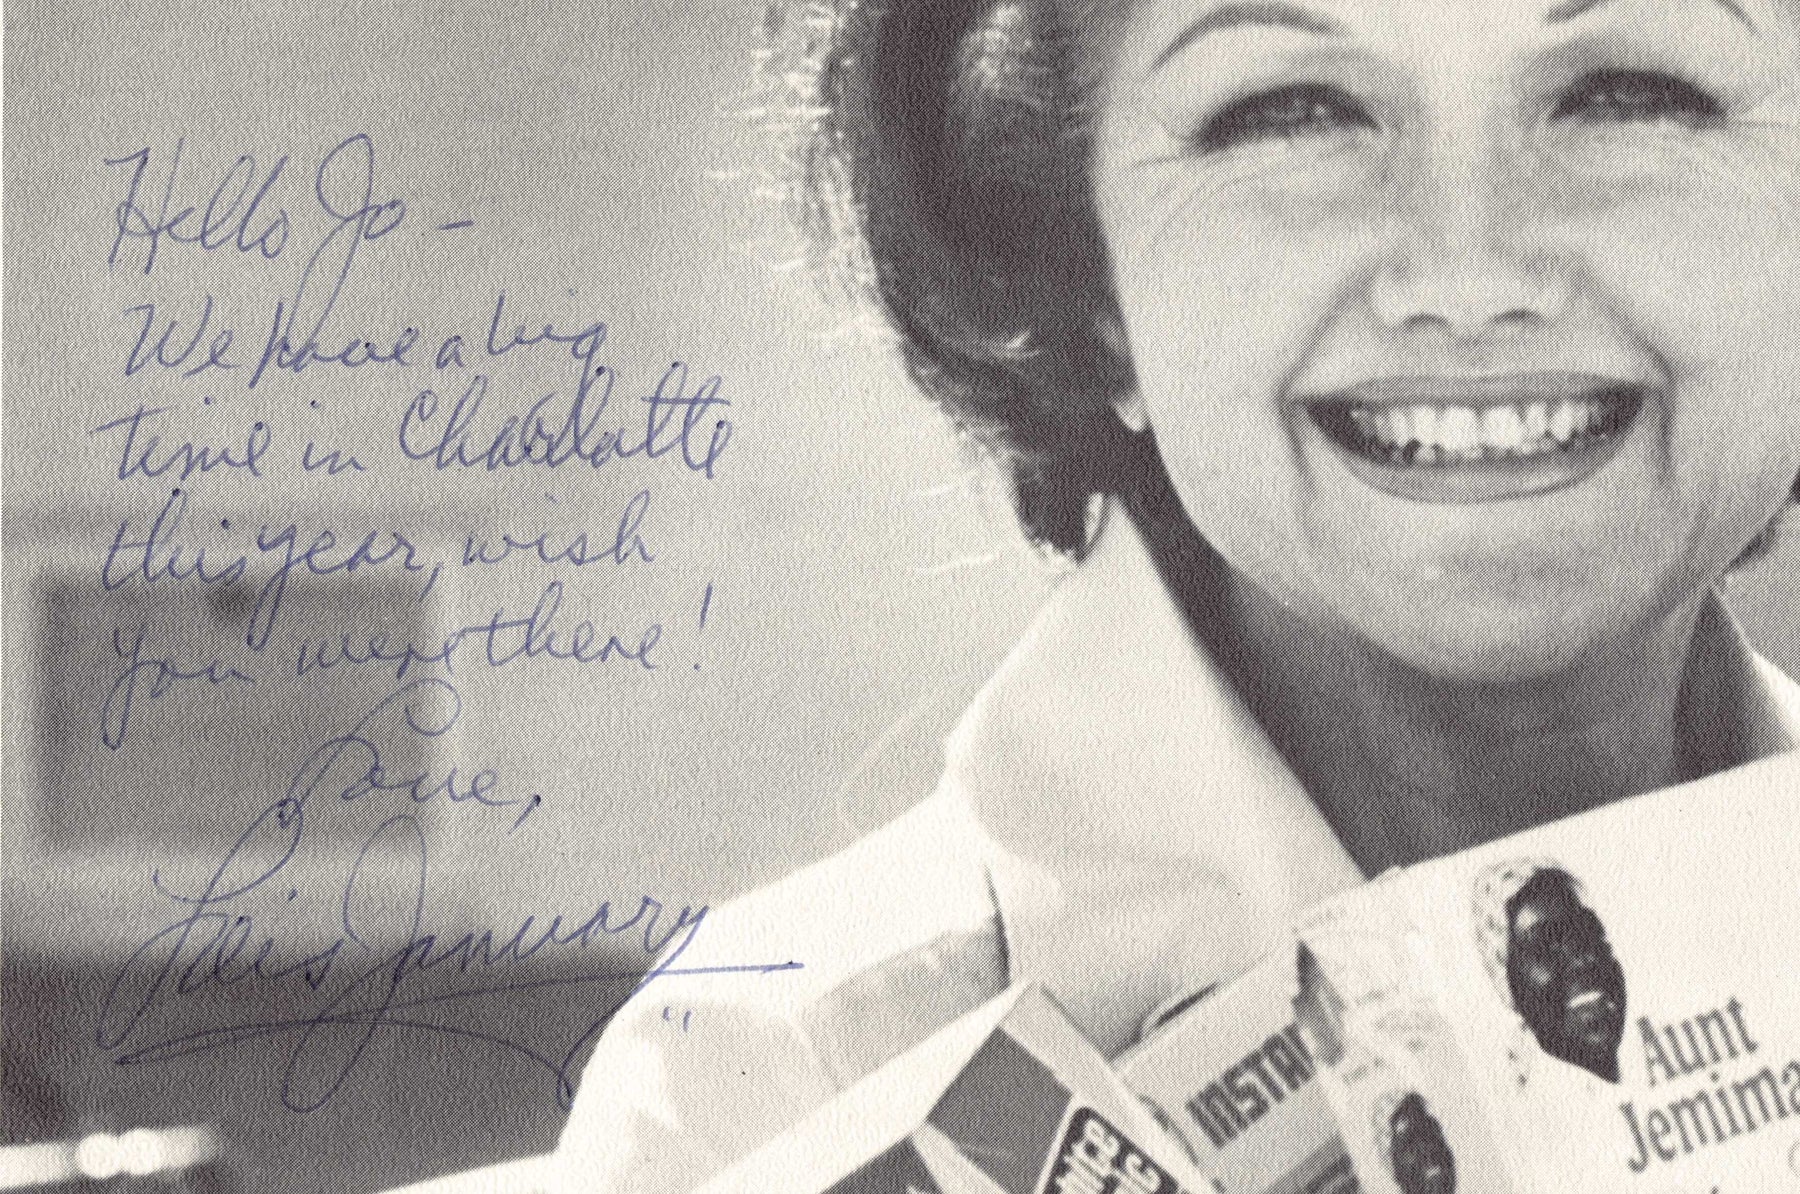 Hello Jo -
We have a big
time in Charlotte
this year, wish
you were there!
Love,
Lois January
"
INSTAN
Aunt
Jemima